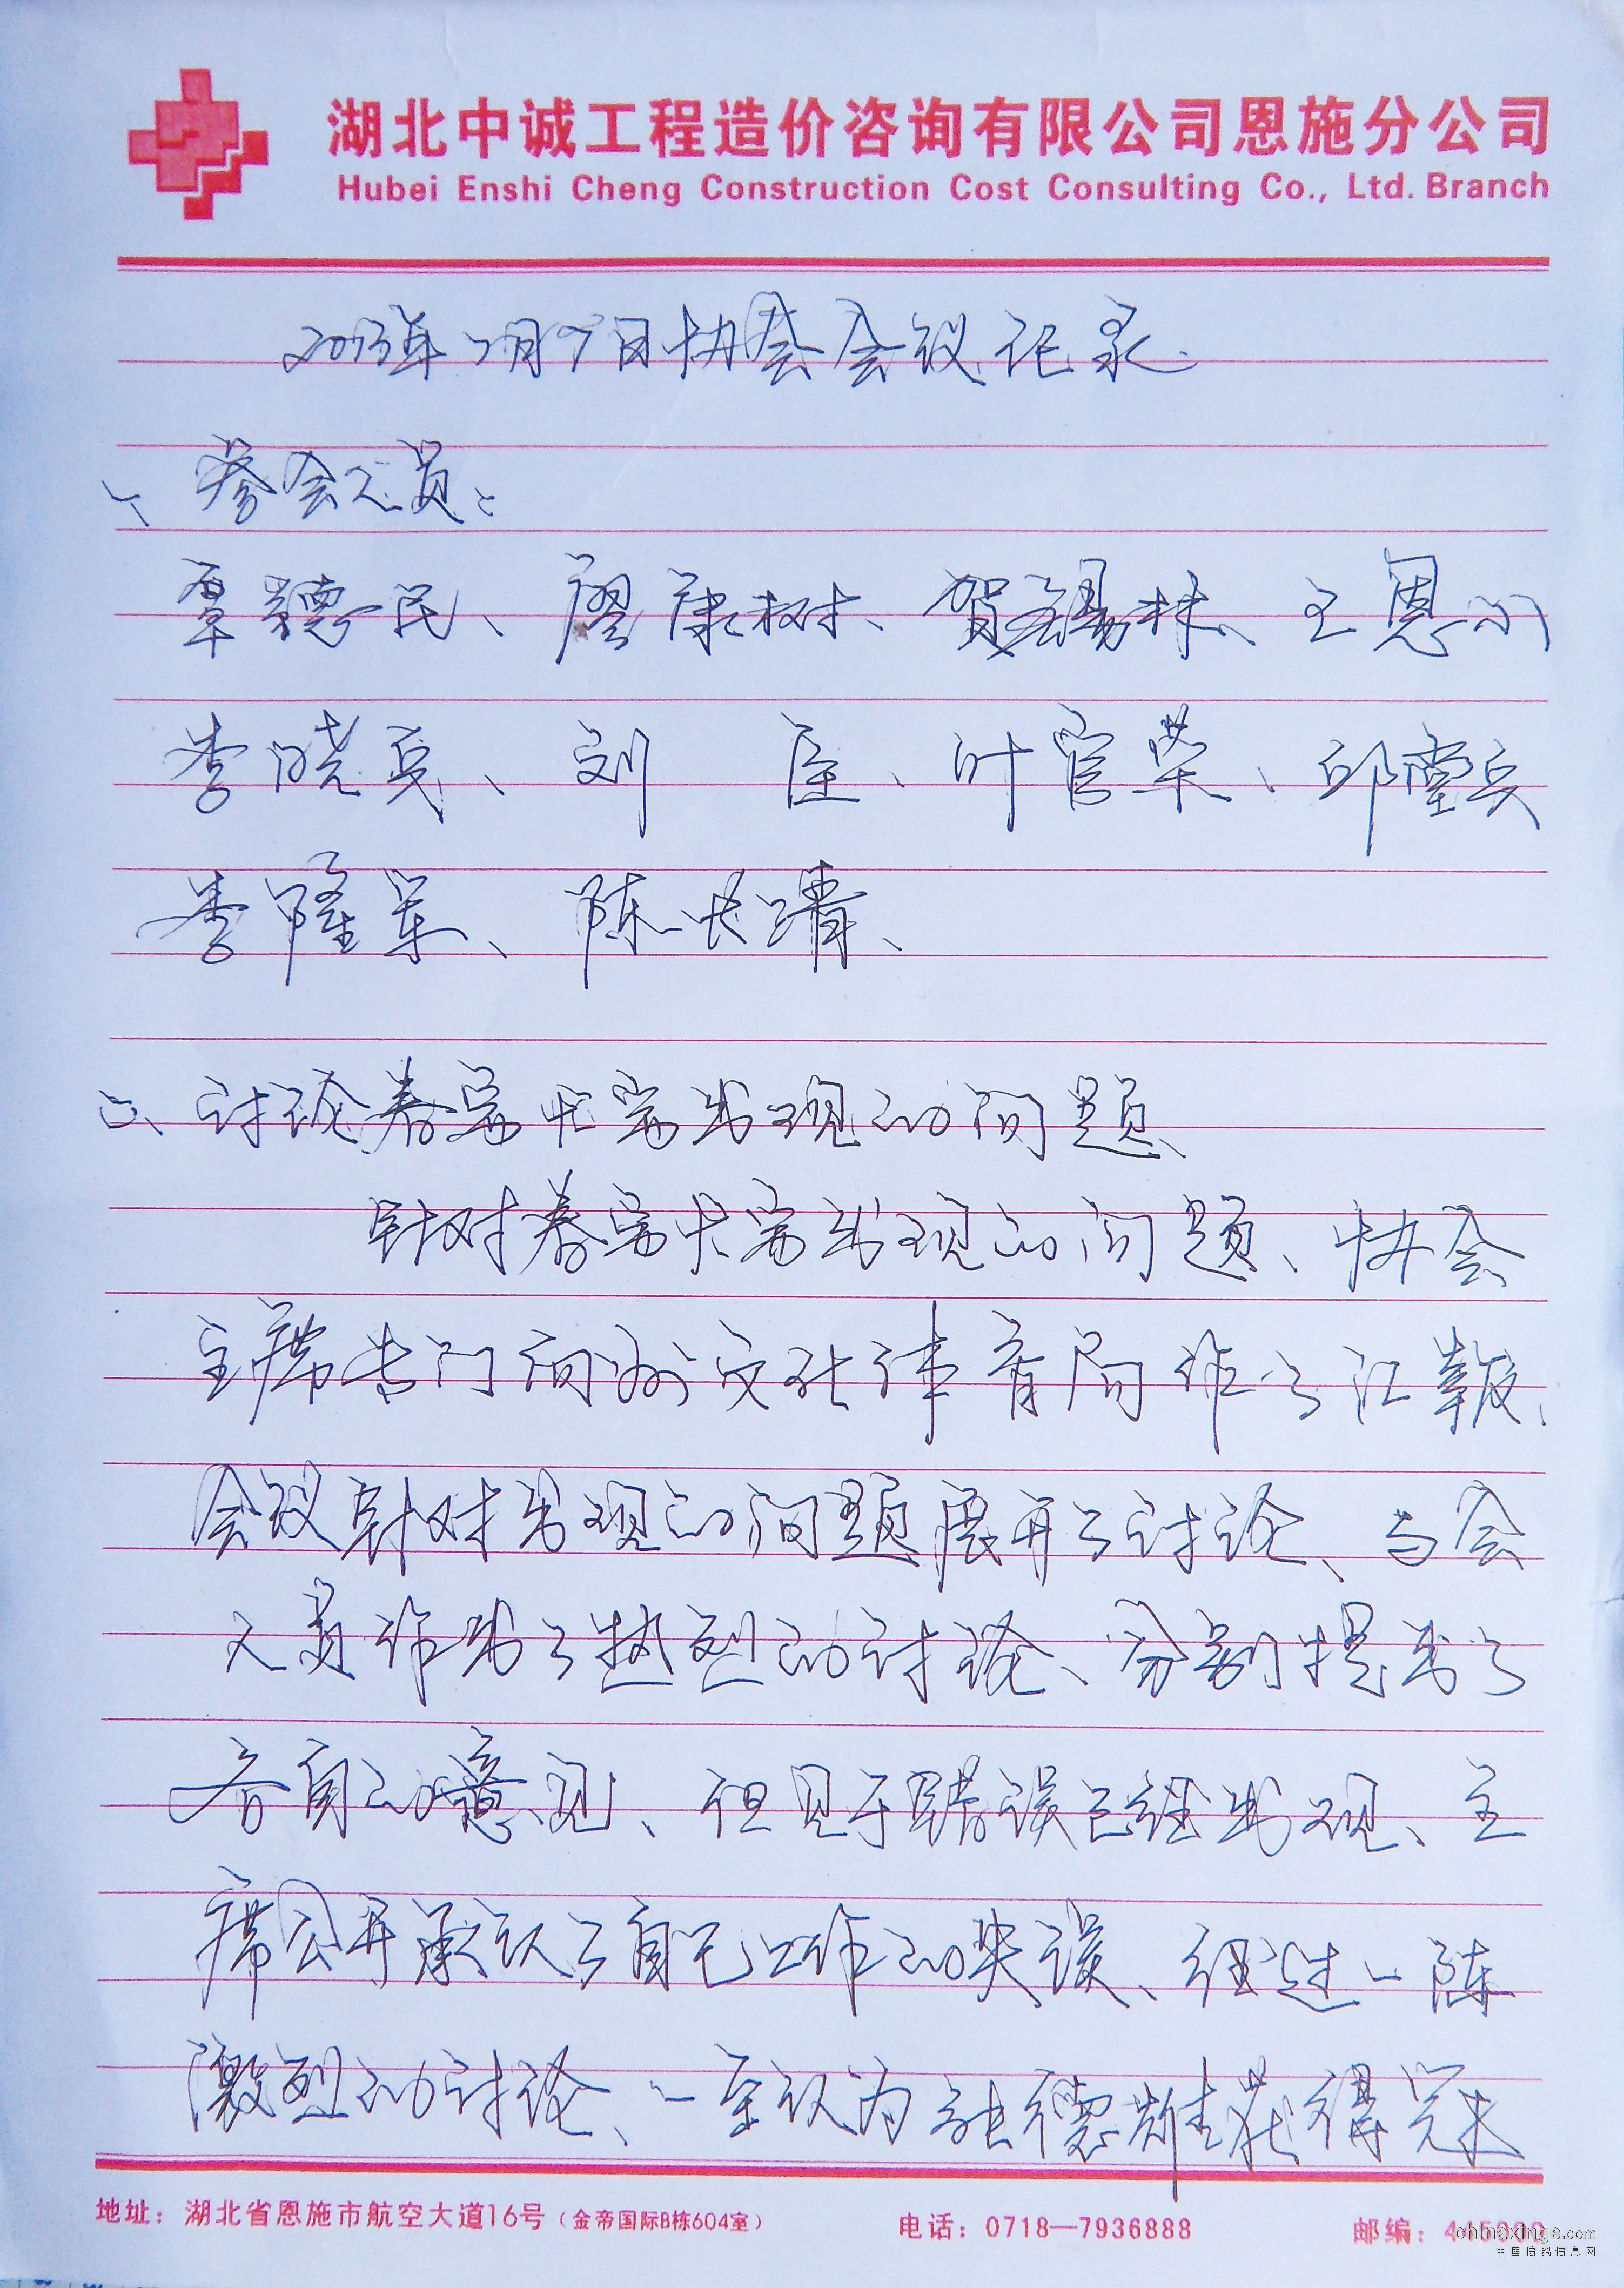 湖北中诚工程造价咨询有限公司恩施分公司
Hubei Enshi Cheng Construction Cost Consulting Co., Ltd. Branch
2013年7月9日协会会议记录.
一、参会人员:
覃德民、廖康树、贺锡林、王恩
李晓兵、刘 臣、叶官荣、邱兵
李隆军、陈长清、
二、讨论春家大赛出现的问题、
针对春家大赛出现的问题、协会
主席专门向州文化体育局作了汇报、
会议针对出现的问题展开了讨论、与会
人员作出了热烈的讨论、分别提出了
各自的意见、但见于错误已经出现、主
席公开承认了自己工作的失误、经过一阵
激烈的讨论、一至认为张德雄获得冠
地址：湖北省恩施市航空大道16号（金帝国际B栋604室）
电话：0718—7936888
邮编：445000
chinaxinge.com
中国信鸽信息网